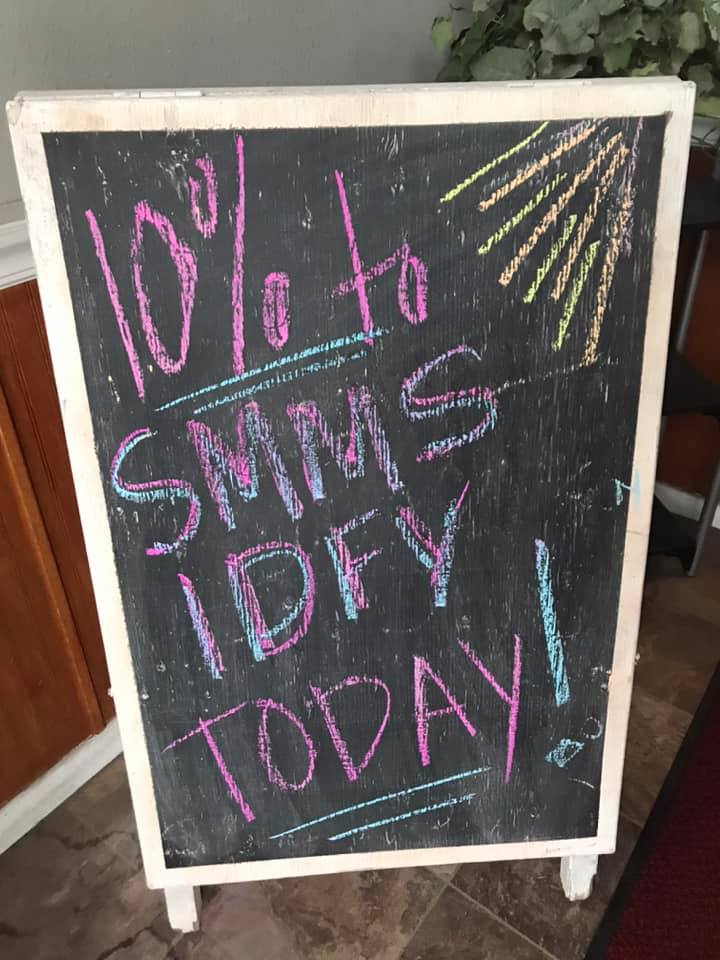 10% to
SMMS
IDFY
TODAY!